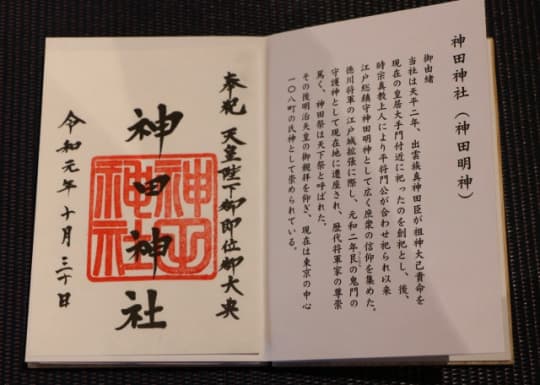 神田神社（神田明神）
御由緒
当社は天平二年、出雲族真神田臣が祖神大己貴命を
現在の皇居大手門付近に祀ったのを創祀とし、後、
時宗真教上人により平将門公が合わせ祀られ以来
江戸総鎮守神田明神として広く庶衆の信仰を集めた。
徳川将軍の江戸城拡張に際し、元和二年艮の鬼門の
守護神として現在地に遷座され、歴代将軍家の尊崇
篤く、神田祭は天下祭と呼ばれた。
その後明治天皇の御親拝を仰ぎ、現在は東京の中心
一〇八町の氏神として崇められている。
奉祝 天皇陛下御即位御大典
神田神社
神田神社
令和元年十月三十日